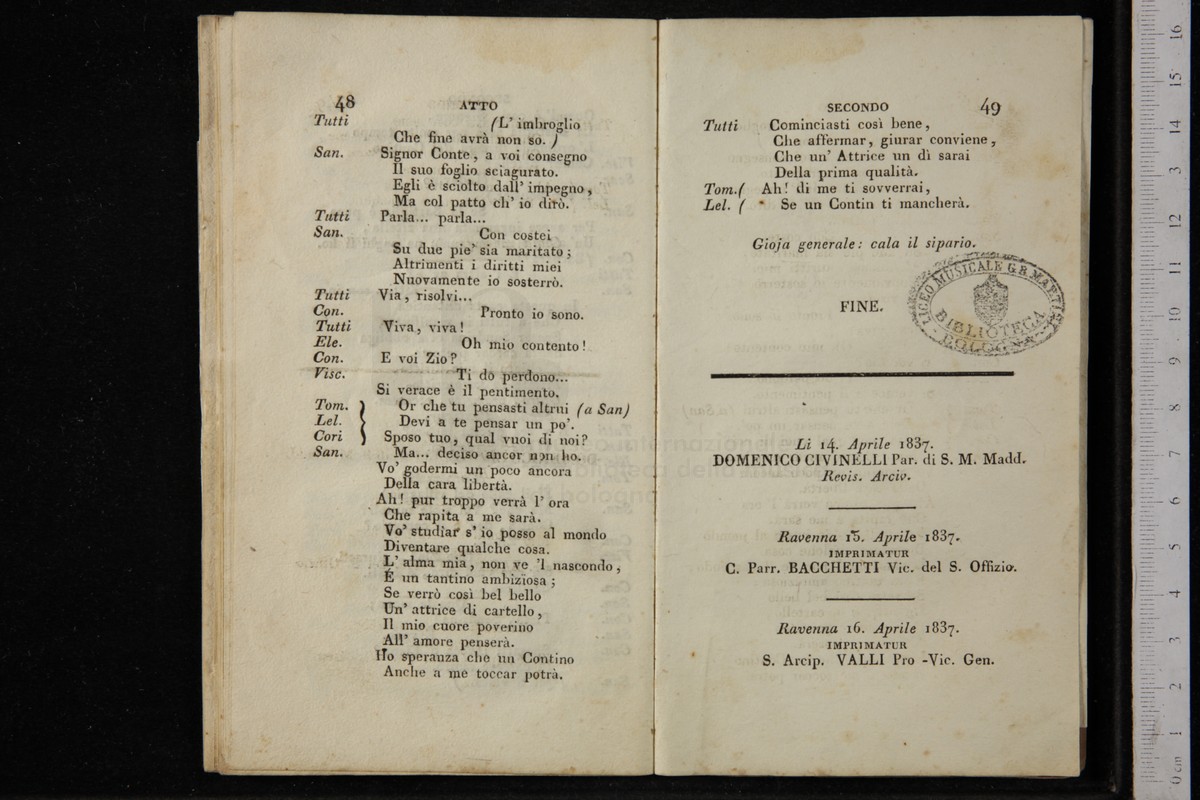 48 ATTO
Tutti (L' imbroglio
Che fine avrà non so. )
San. Signor Conte, a voi consegno
Il suo foglio sciagurato.
Egli è sciolto dall' impegno,
Ma col patto ch' io dirò.
Tutti Parla... parla...
San. Con costei
Su due pie' sia maritato;
Altrimenti i diritti miei
Nuovamente io sosterrò.
Tutti Via, risolvi...
Con. Pronto io sono.
Tutti Viva, viva!
Ele. Oh mio contento!
Con. E voi Zio?
Visc. Ti do perdono...
Si verace è il pentimento.
Tom. } Or che tu pensasti altrui (a San)
Lel. } Devi a te pensar un po'.
Cori } Sposo tuo, qual vuoi di noi?
San. Ma... deciso ancor non ho.
Vo' godermi un poco ancora
Della cara libertà.
Ah! pur troppo verrà l' ora
Che rapita a me sarà.
Vo' studiar s' io posso al mondo
Diventare qualche cosa.
L' alma mia, non ve 'l nascondo,
É un tantino ambiziosa;
Se verrò così bel bello
Un' attrice di cartello,
Il mio cuore poverino
All' amore penserà.
Ho speranza che un Contino
Anche a me toccar potrà.
SECONDO 49
Tutti Cominciasti così bene,
Che affermar, giurar conviene,
Che un' Attrice un dì sarai
Della prima qualità.
Tom. ( Ah! di me ti sovverrai,
Lel. ( Se un Contin ti mancherà.
Gioja generale: cala il sipario.
FINE.
LICEO MUSICALE G.B. MARTINI
BIBLIOTECA
BOLOGNA
Li 14. Aprile 1837.
DOMENICO CIVINELLI Par. di S. M. Madd.
Revis. Arciv.
Ravenna 15. Aprile 1837.
IMPRIMATUR
C. Parr. BACCHETTI Vic. del S. Offizio.
Ravenna 16. Aprile 1837.
IMPRIMATUR
S. Arcip. VALLI Pro-Vic. Gen.
0 cm 1 2 3 4 5 6 7 8 9 10 11 12 13 14 15 16